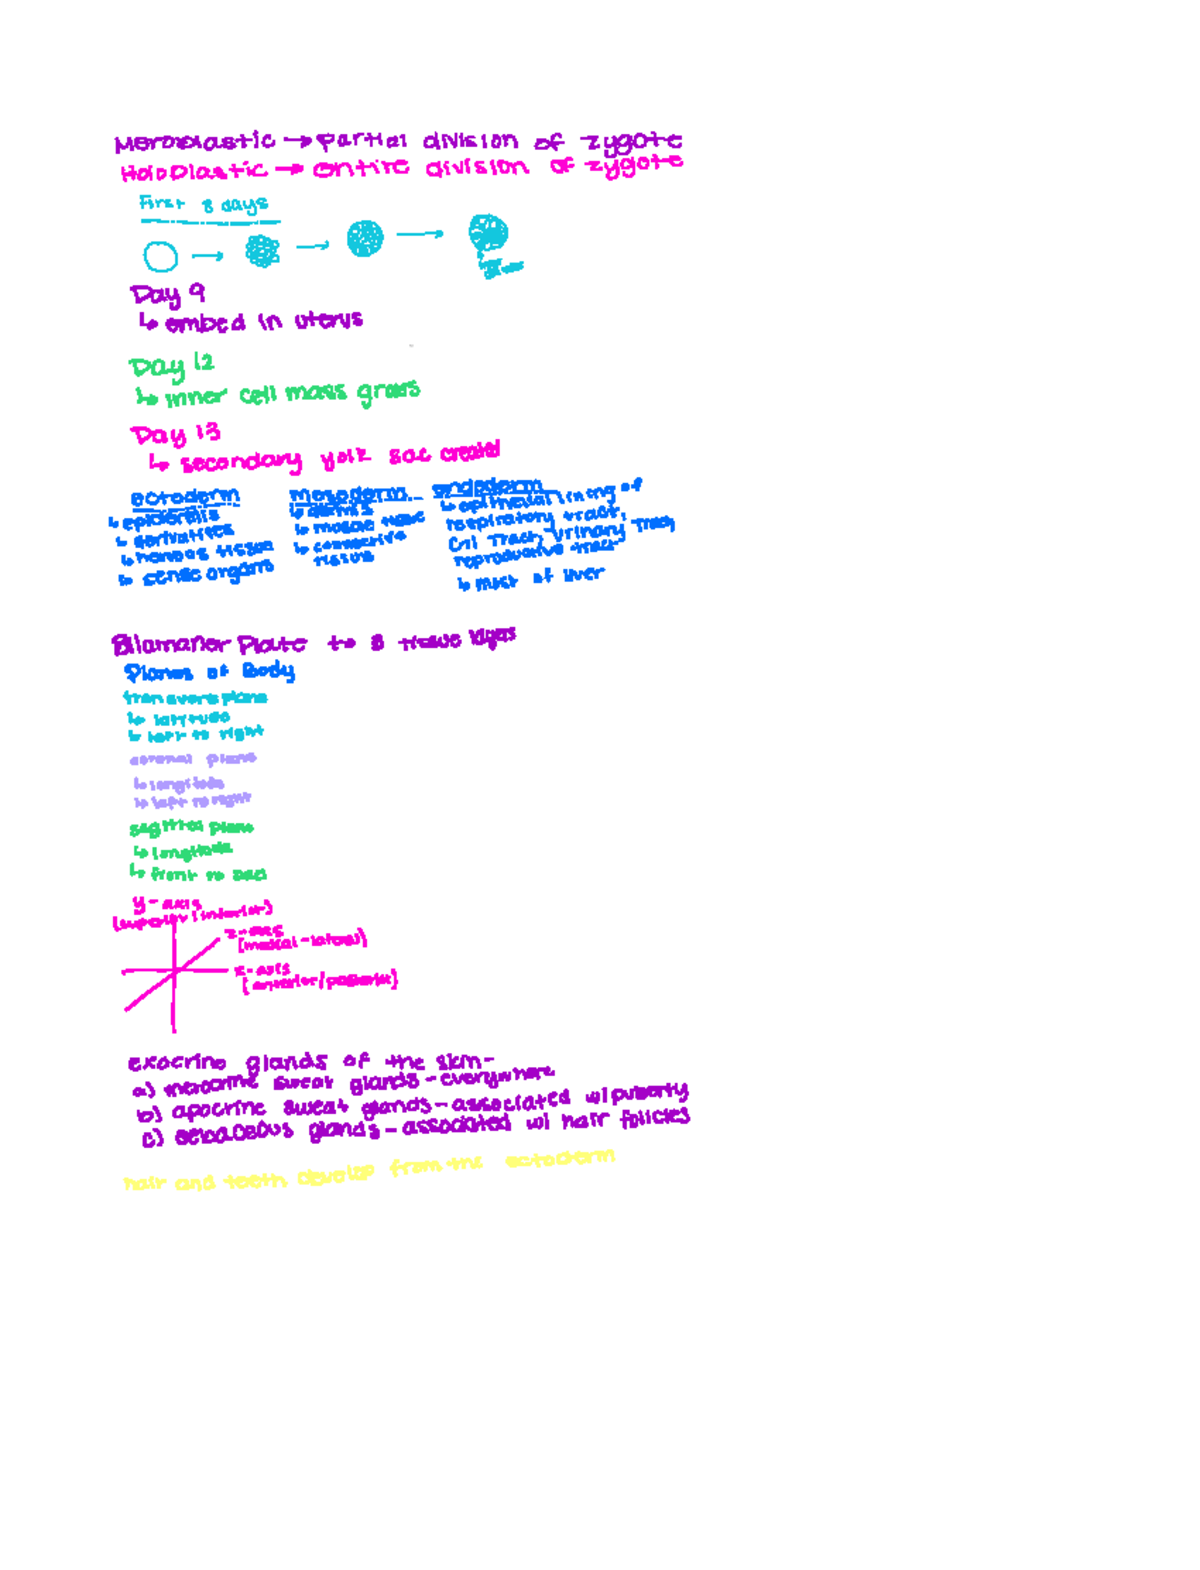 Meroblastic → partial division of zygote
Holoblastic → entire division of zygote
First 8 days
Day 9
↳ embed in uterus
Day 12
↳ inner cell mass grows
Day 13
↳ secondary yolk sac created
ectoderm
↳ epidermis
↳ derivatives
↳ nervous tissue
↳ sense organs
mesoderm
↳ dermis
↳ muscle tissue
↳ connective
tissue
endoderm
↳ epithelial lining of
respiratory tract,
GI Tract, Urinary Tract
reproductive tract
↳ most of liver
Bilamaner Plate to 3 tissue layers
Planes of Body
transverse plane
↳ latitude
↳ left to right
coronal plane
↳ longitude
↳ left to right
sagittal plane
↳ longitude
↳ front to
y-axis
(superior/inferior)
z-axis
(medial-lateral)
x-axis
(anterior/posterior)
exocrine glands of the skin-
a) merocrine sweat glands - everywhere
b) apocrine sweat glands - associated w/ puberty
c) sebaceous glands - associated w/ hair follicles
hair and teeth develop from the ectoderm